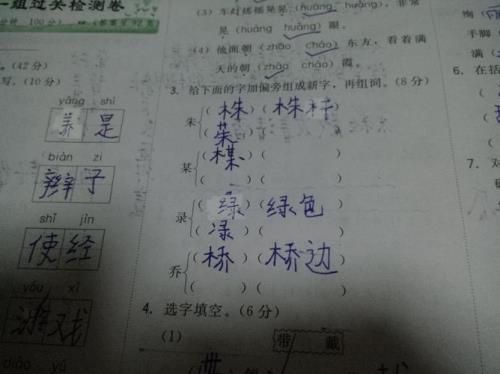 一组过关检测卷
分钟 100分)
。(42分)
写。(10分)
yǎng shì
养 是
biàn zi
辫 子
shǐ jìn
使 经
yóu xì
游 戏
diào yú
是(huáng huǎng)眼。
(4)他面朝(zhāo cháo)东方,看着满
天的朝(zhāo cháo)霞。
3. 给下面的字加偏旁组成新字,再组词。(8分)
朱 (株)(株杆)
(茱)( )
某 (楳)( )
( )( )
录 (绿)(绿色)
(渌)( )
乔 (桥)(桥边)
( )( )
4. 选字填空。(6分)
(1) 带 戴
手脚(
满(
6. 在括
7. 对